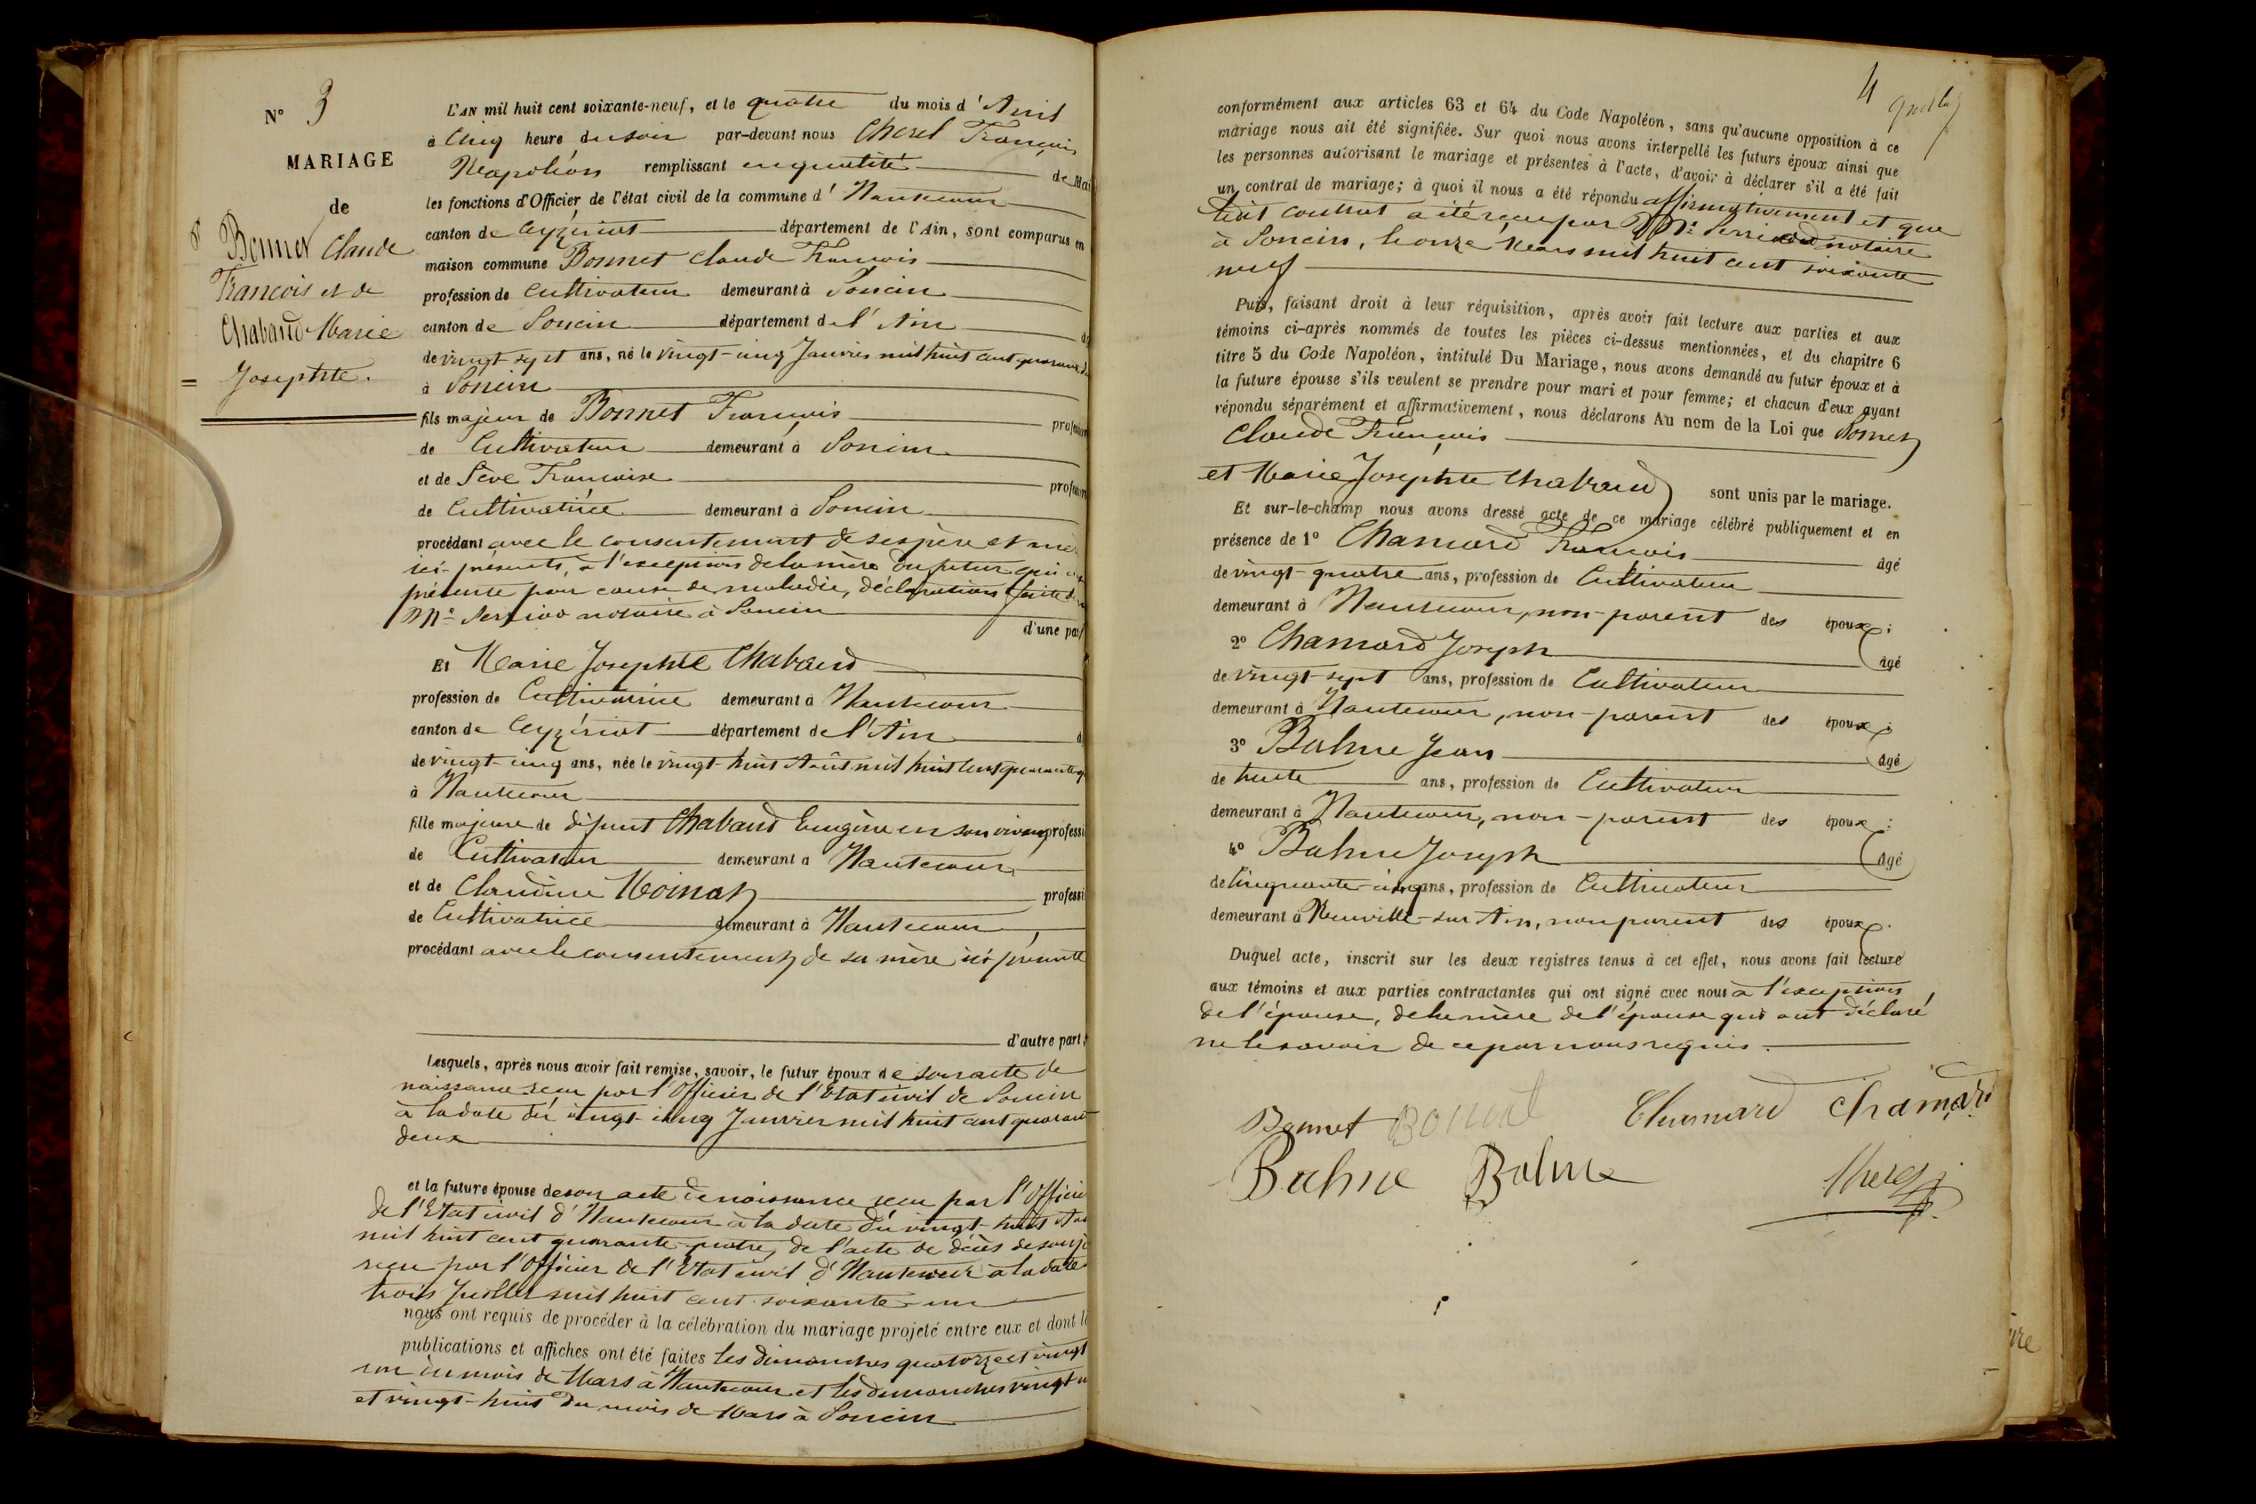 N° 3
MARIAGE
de
Bonnet Claude
François et de
Chabaud Marie
Josephte.
L'AN mil huit cent soixante-neuf, et le quatre du mois d'Avril
à Cinq heure du soir par-devant nous Cherel François
Napoléon remplissant en qualité de Mai
les fonctions d'Officier de l'état civil de la commune d'Hautecour
canton de Ceyzériat département de l'Ain, sont comparus en
maison commune Bonnet Claude François
profession de Cultivateur demeurant à Poncin
canton de Poncin département de l'Ain
de vingt-sept ans, né le vingt-cinq Janvier mil huit cent quarante
à Poncin
fils majeur de Bonnet François profession
de Cultivateur demeurant à Poncin
et de Sève Françoise profession
de Cultivatrice demeurant à Poncin
procédant avec le consentement de ses père et mère
ici présents, à l'exception de la mère du futur qui
présente pour cause de maladie, déclaration faite
Me notaire à Poncin
d'une part
Et Marie Josephte Chabaud
profession de Cultivatrice demeurant à Hautecour
canton de Ceyzériat département de l'Ain
de vingt-cinq ans, née le vingt-huit Août mil huit cent quarante q
à Hautecour
fille majeure de défunt Chabaud Eugène en son vivant professi
de Cultivateur demeurant à Hautecour
et de Claudine Moinat professi
de Cultivatrice demeurant à Hautecour
procédant avec le consentement de sa mère ici présente
d'autre part;
Lesquels, après nous avoir fait remise, savoir, le futur époux de son acte de
naissance reçu par l'Officier de l'Etat civil de Poncin
à la date du vingt-cinq Janvier mil huit cent quarante
deux
et la future épouse de son acte de naissance reçu par l'Officier
de l'Etat civil d'Hautecour à la date du vingt-huit Aoû
mil huit cent quarante-quatre, de l'acte de décès de son pè
reçu par l'Officier de l'Etat civil d'Hautecour à la date
trois Juillet mil huit cent soixante-un
nous ont requis de procéder à la célébration du mariage projeté entre eux et dont le
publications et affiches ont été faites les dimanches quatorze et vingt
un du mois de Mars à Hautecour et les dimanches vingt-u
et vingt-huit du mois de Mars à Poncin
4
conformément aux articles 63 et 64 du Code Napoléon, sans qu'aucune opposition à ce
mariage nous ait été signifiée. Sur quoi nous avons interpellé les futurs époux ainsi que
les personnes autorisant le mariage et présentes à l'acte, d'avoir à déclarer s'il a été fait
un contrat de mariage; à quoi il nous a été répondu affirmativement et que
ledit contrat a été reçu par Me notaire
à Poncin, le onze Mars mil huit cent soixante
neuf
Puis, faisant droit à leur réquisition, après avoir fait lecture aux parties et aux
témoins ci-après nommés de toutes les pièces ci-dessus mentionnées, et du chapitre 6
titre 5 du Code Napoléon, intitulé Du Mariage, nous avons demandé au futur époux et à
la future épouse s'ils veulent se prendre pour mari et pour femme; et chacun d'eux ayant
répondu séparément et affirmativement, nous déclarons Au nom de la Loi que Bonnet
Claude François
et Marie Josephte Chabaud sont unis par le mariage.
Et sur-le-champ nous avons dressé acte de ce mariage célébré publiquement et en
présence de 1° Chamard François âgé
de vingt-quatre ans, profession de Cultivateur
demeurant à Hautecour, non-parent des époux;
2° Chamard Joseph âgé
de vingt-sept ans, profession de Cultivateur
demeurant à Hautecour, non-parent des époux;
3° Balme Jean âgé
de trente ans, profession de Cultivateur
demeurant à Hautecour, non-parent des époux;
4° Balme Joseph âgé
de cinquante-cinq ans, profession de Cultivateur
demeurant à Neuville-sur-Ain, non parent des époux.
Duquel acte, inscrit sur les deux registres tenus à cet effet, nous avons fait lecture
aux témoins et aux parties contractantes qui ont signé avec nous à l'exception
de l'épouse, de la mère de l'épouse qui ont déclaré
ne le savoir de ce par nous requis.
Bonnet Bonnet Chamard Chamard
Balme Balme Cherel